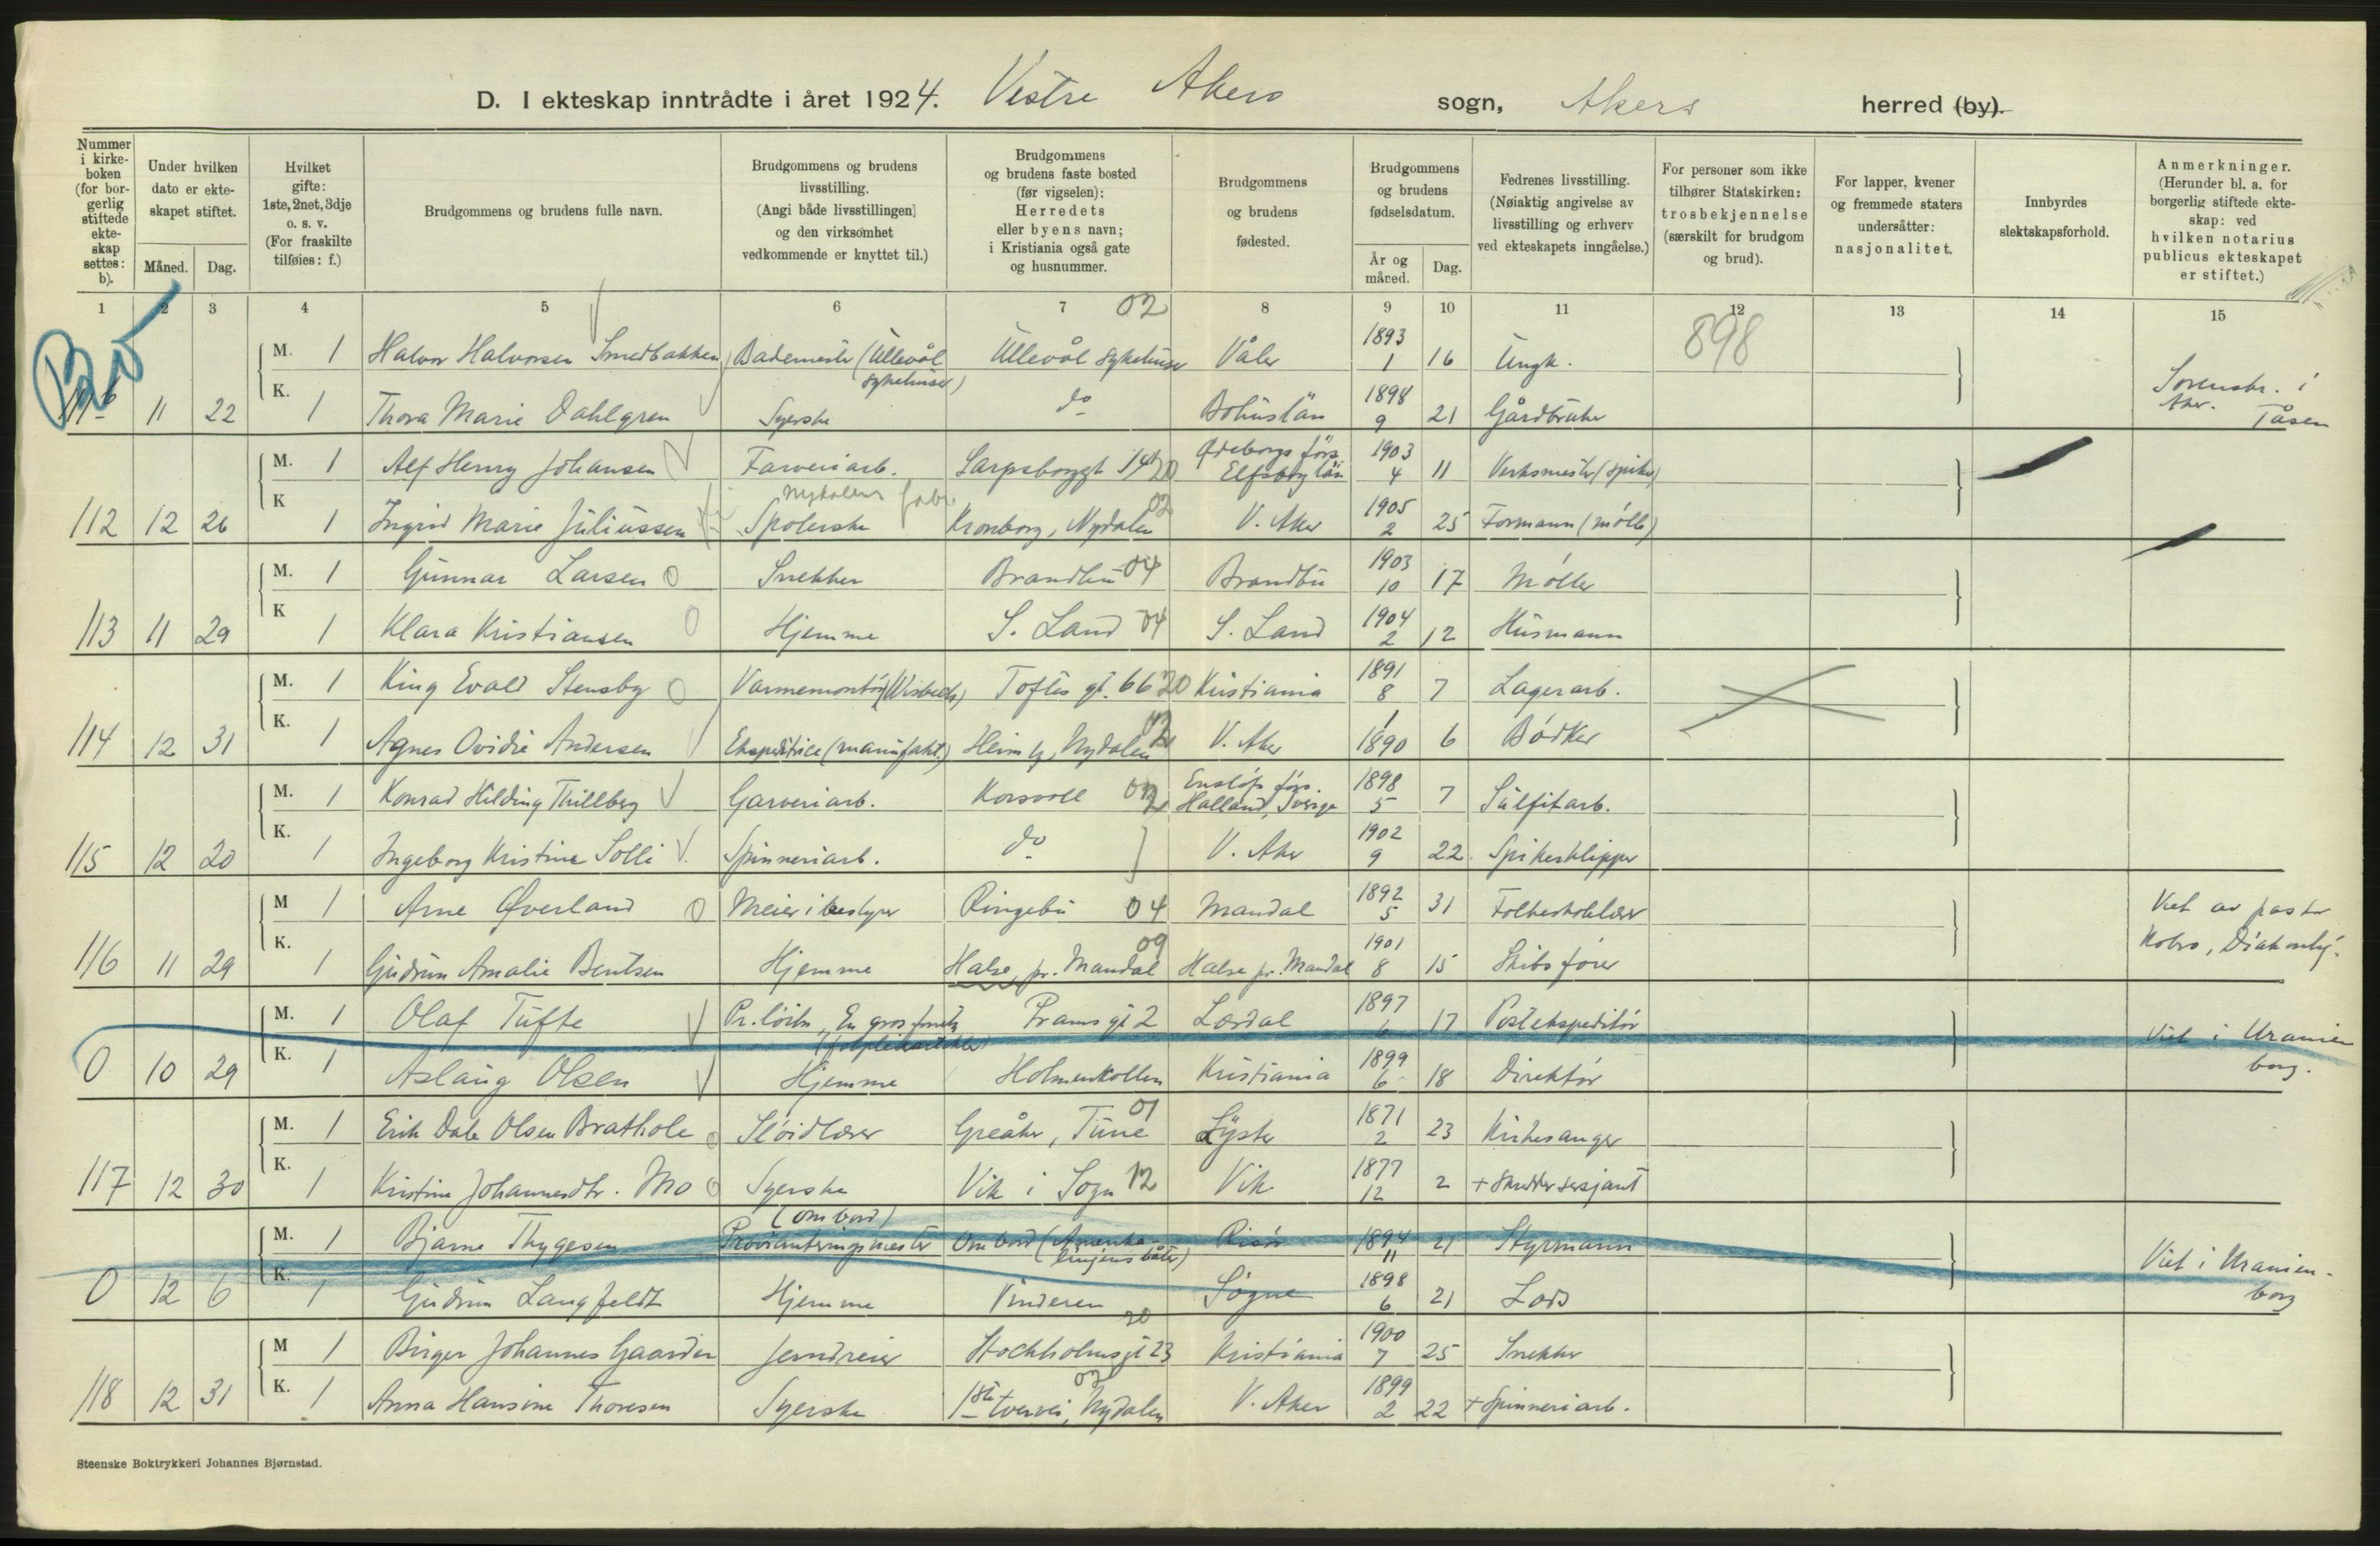 D. I ekteskap inntrådte i året 1924. Vestre Akers sogn, Akers herred (by).
Nummer i kirkeboken (for borgerlig stiftede ekteskap settes: b).
Under hvilken dato er ekteskapet stiftet.
Måned. Dag.
Hvilket gifte: 1ste, 2net, 3dje o. s. v. (For fraskilte tilføies: f.)
Brudgommens og brudens fulle navn.
Brudgommens og brudens livsstilling. (Angi både livsstillingen og den virksomhet vedkommende er knyttet til.)
Brudgommens og brudens faste bosted (før vigselen): Herredets eller byens navn; i Kristiania også gate og husnummer.
Brudgommens og brudens fødested.
Brudgommens og brudens fødselsdatum.
År og måned. Dag.
Fedrenes livsstilling. (Nøiaktig angivelse av livsstilling og erhverv ved ekteskapets inngåelse.)
For personer som ikke tilhører Statskirken: trosbekjennelse (særskilt for brudgom og brud).
For lapper, kvener og fremmede staters undersåtter: nasjonalitet.
Innbyrdes slektskapsforhold.
Anmerkninger. (Herunder bl. a. for borgerlig stiftede ekteskap: ved hvilken notarius publicus ekteskapet er stiftet.)
1 2 3 4 5 6 7 02 8 9 10 11 12 13 14 15
M. 1 Halvor Halvorsen Smedbakken Bademester (Ullevål sykehuser) Ullevål sykehuser Våler 1893 1 16 Ungk. 898
11 22 K. 1 Thora Marie Dahlgren Syerske do Bohuslän 1898 9 21 Gårdbruker Sorenskr. i Aker. Tåsen
M. 1 Alf Henry Johansen Farveriarb. Sarpsborggt 20 Ødeborgs förs. Elfsborg län 1903 4 11 Verksmester (spiker)
112 12 26 K 1 Ingrid Marie Juliussen Spolerske Nydalens fabr. Kronborg, Nydalen 02 V. Aker 1905 2 25 Formann (mølle)
M. 1 Gunnar Larsen Snekker Brandbu 04 Brandbu 1903 10 17 Møller
113 11 29 K 1 Klara Kristiansen Hjemme S. Land 04 S. Land 1904 2 12 Husmann
M. 1 King Evald Stensby Varmemontør (Wisbech) Toftes gt. 66 20 Kristiania 1891 8 7 Lagerarb.
114 12 31 K. 1 Agnes Ovidie Andersen Ekspeditrice (manufakt.) Heim, Nydalen 02 V. Aker 1 1890 6 Bødker
M. 1 Konrad Hilding Thillberg Garveriarb. Korsvoll 02 Enslöfs förs. Halland, Sverige 1898 5 7 Sulfitarb.
115 12 20 K. 1 Ingeborg Kristine Solli Spinneriarb. do V. Aker 1902 9 22 Spikerklipper
M 1 Arne Øverland Meieribestyrer Ringebu 04 Mandal 1892 5 31 Folkeskolelærer Viet av pastor
116 11 29 K. 1 Gudrun Amalie Bentsen Hjemme Halse pr. Mandal 09 Halse pr. Mandal 1901 8 15 Skibsfører
M. 1 Olaf Tufte Frams gt 2 Lærdal 1897 6 17 Postekspeditør Viet i Uranienborg.
0 10 29 K. 1 Aslaug Olsen Hjemme Holmenkollen Kristiania 1899 6 18 Direktør
M. 1 Erik Dale Olsen Brathole Sløidlærer Greåker, Tune 01 Lyster 1871 2 23 Kirkesanger
117 12 30 K. 1 Kristine Johannesdtr. Mo Syerske Vik i Sogn 12 Vik 1877 12 2 + Skreddersersjant
M. 1 Bjarne Thygesen Proviantteringsmester (ombord) Ombord (Amerikalinjens båter) Risør 1894 11 21 Styrmann
0 12 6 K. 1 Gudrun Langfeldt Hjemme Vinderen Søgne 1898 6 21 Lods Viet i Uranienborg
M 1 Birger Johannes Gaarder Jerndreier Stockholmsgt 23 20 Kristiania 1900 7 25 Snekker
118 12 31 K. 1 Anna Hansine Thoresen Syerske 1ste tvervei, Nydalen 02 V. Aker 1899 2 22 + Spinneriarb.
Steenske Boktrykkeri Johannes Bjørnstad.